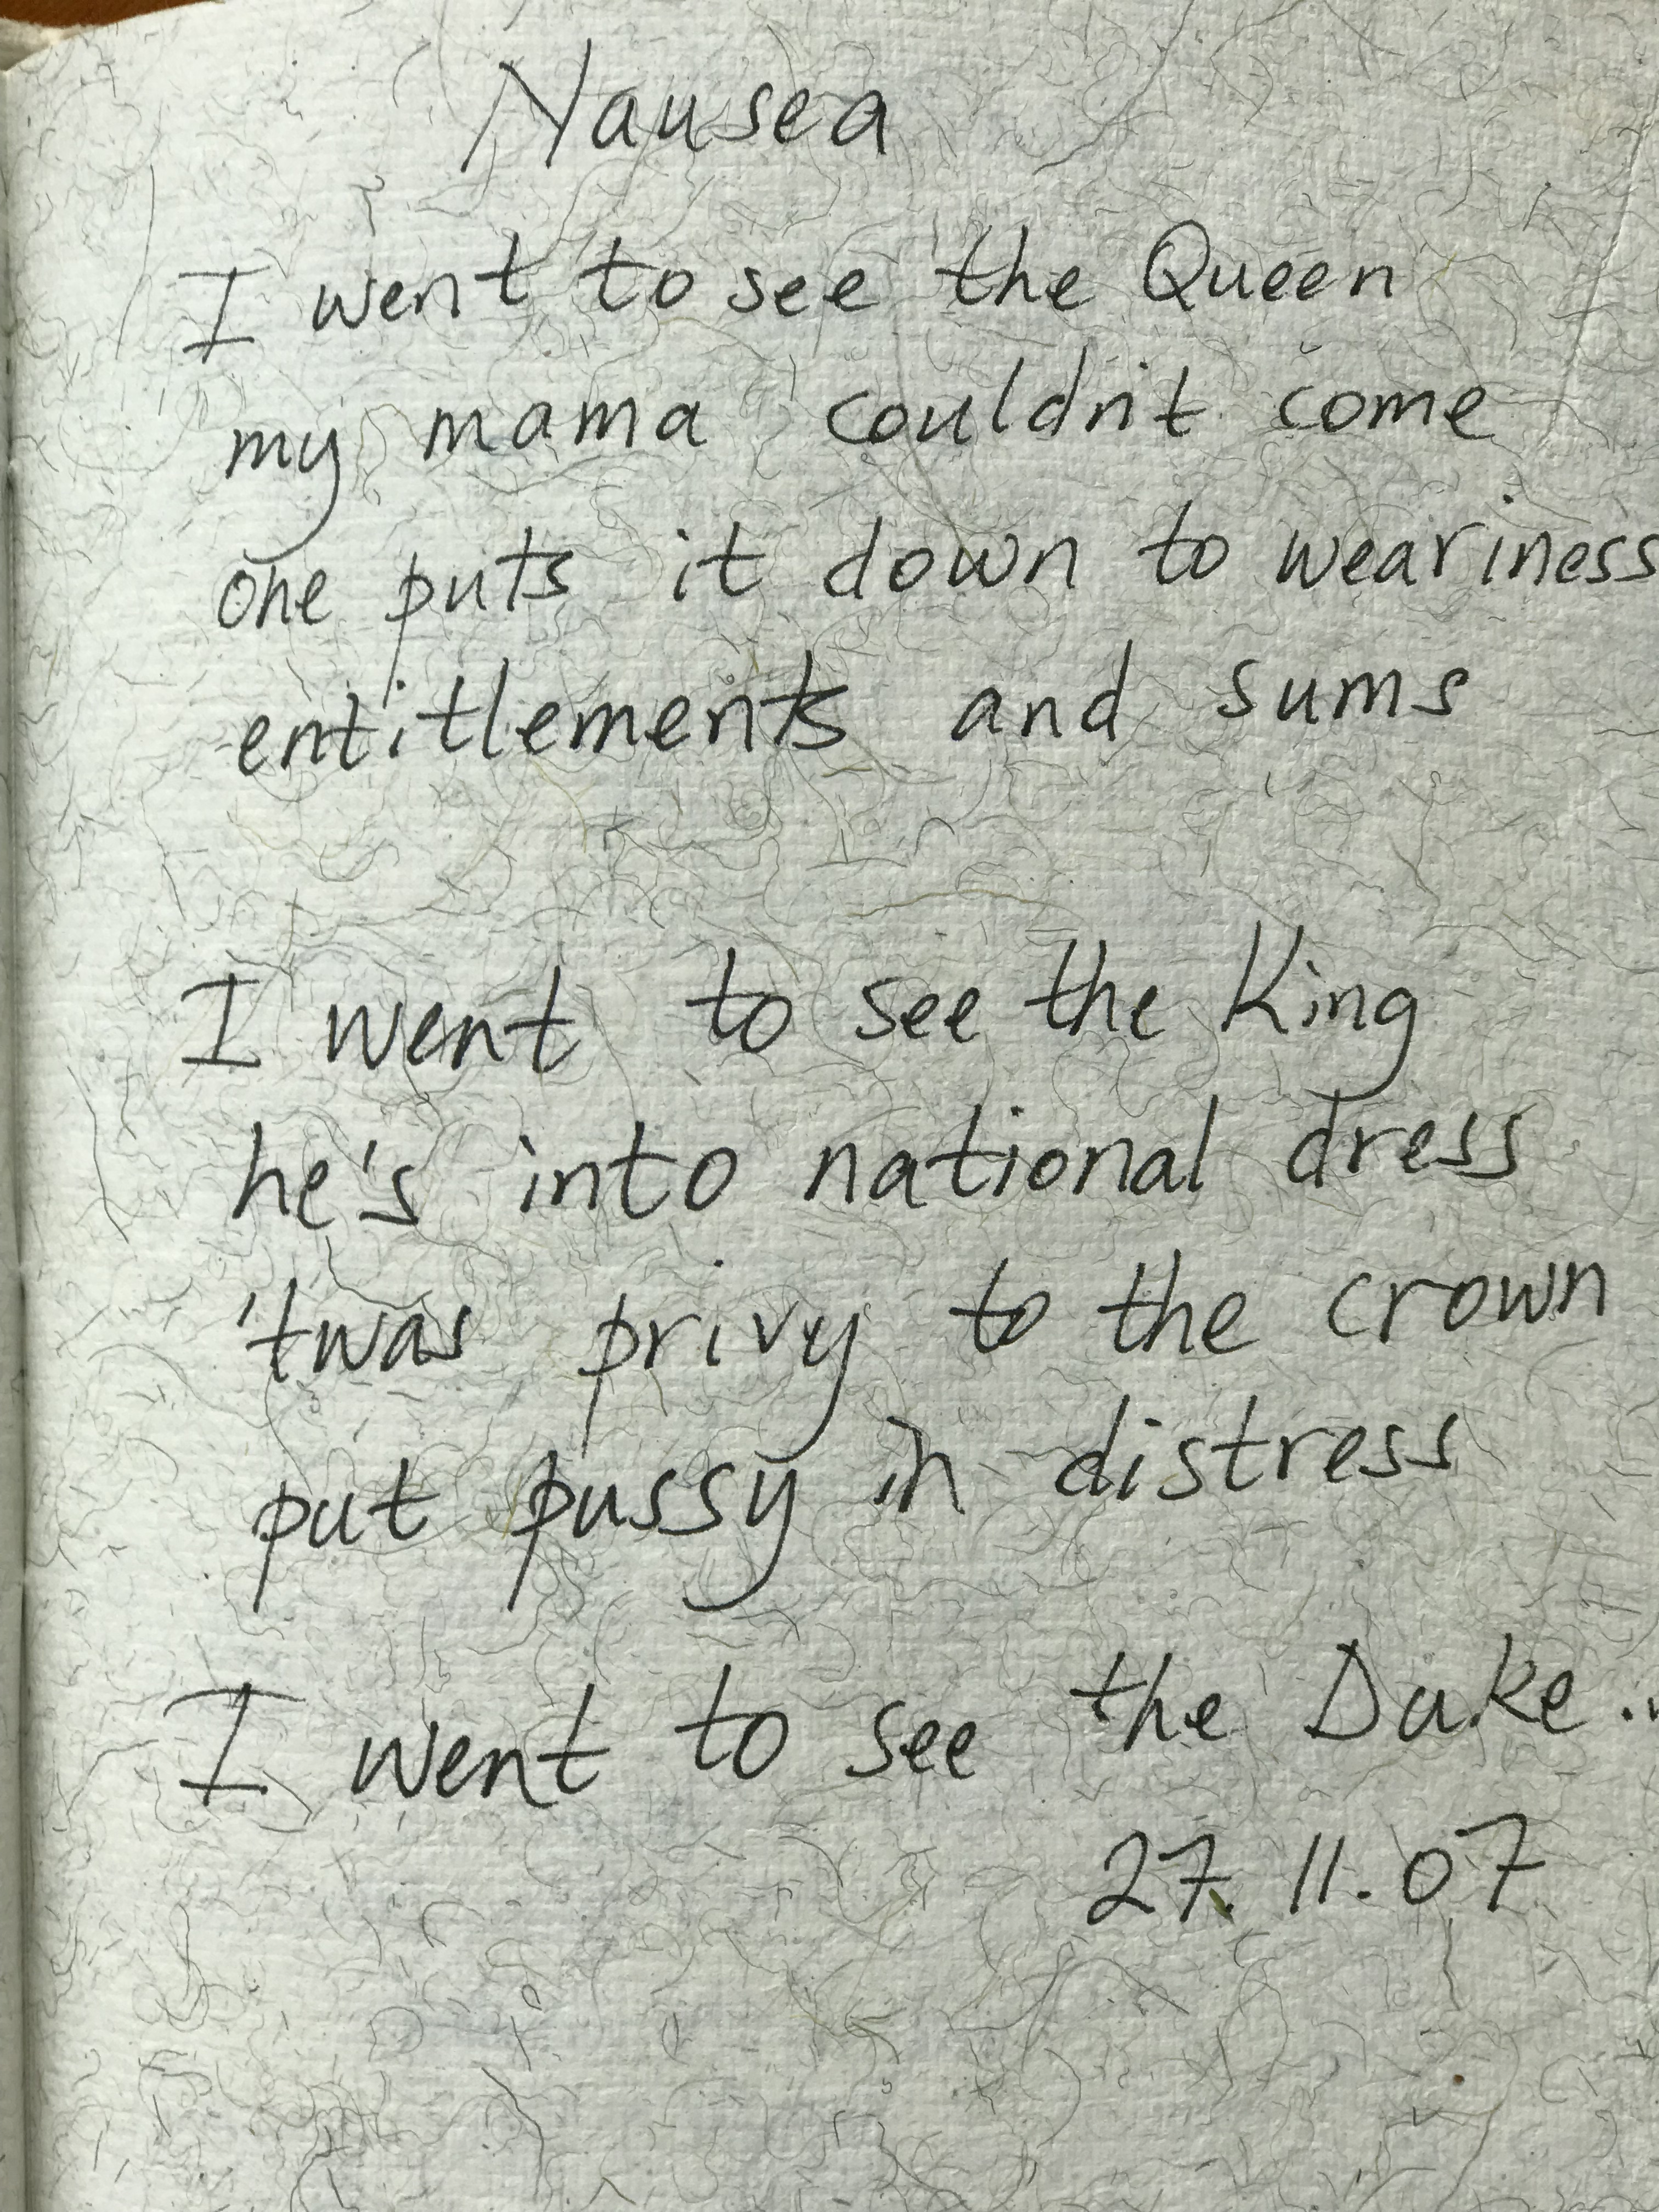 Nausea
I went to see the Queen
my mama couldn't come
one puts it down to weariness
entitlements and sums
I went to see the King
he's into national dress
'twas privy to the crown
put pussy in distress
I went to see the Duke..
27.11.07